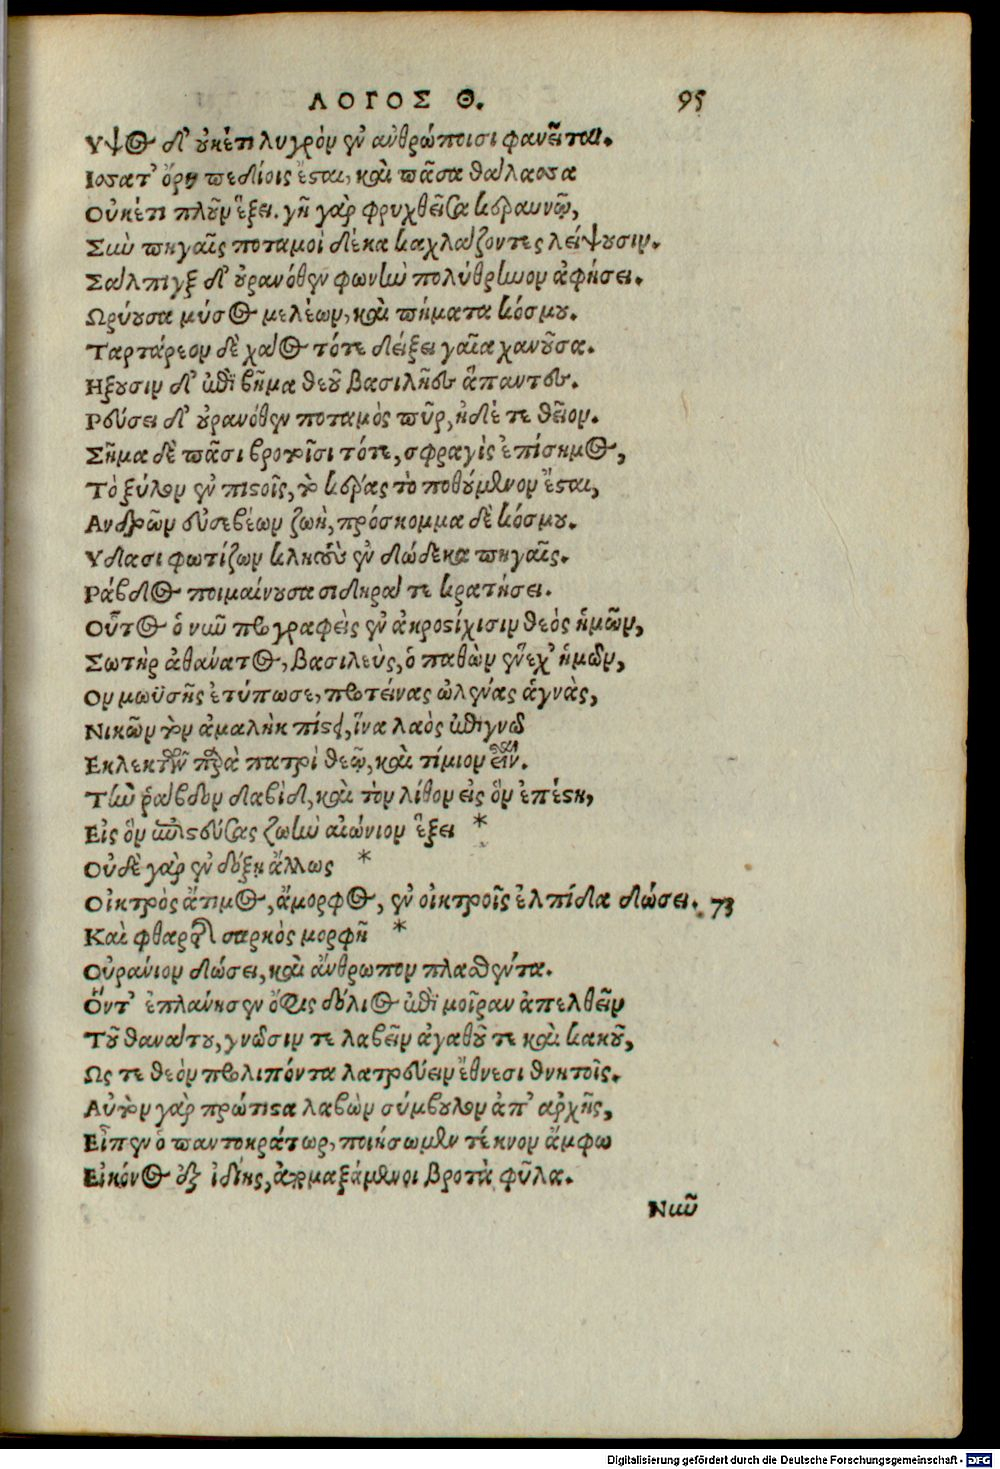 ΛΟΓΟΣ Θ. 95
Υψος δ' οὐκέτι λυγρὸν ἐν ἀνθρώποισι φανεῖται.
Ισατ' ὄρη πεδίοις ἔσται, καὶ πᾶσα θάλασσα
Οὐκέτι πλοῦν ἕξει. γῆ γὰρ φρυχθεῖσα κεραυνῷ,
Σὺν πηγαῖς ποταμοὶ δὲ κα καχλάζοντες λείψουσιν.
Σάλπιγξ δ' οὐρανόθεν φωνὴν πολύθρηνον ἀφήσει.
Ωρύουσα μύσος μελέων, καὶ πήματα κόσμου.
Ταρτάρεον δὲ χάος τότε δείξει γαῖα χανοῦσα.
Ηξουσιν δ' ἐπὶ βῆμα θεοῦ βασιλῆες ἅπαντες.
Ρεύσει δ' οὐρανόθεν ποταμὸς πῦρ, ἠδέ τε θεῖον.
Σῆμα δὲ πᾶσι βροτοῖσι τότε, σφραγὶς ἐπίσημος,
Τὸ ξύλον ἐν πιστοῖς, τὸ κέρας τὸ ποθούμενον ἔσται,
Ανδρῶν εὐσεβέων ζωὴ, πρόσκομμα δὲ κόσμου.
Υδασι φωτίζων κλητοὺς ἐν δώδεκα πηγαῖς.
Ράβδος ποιμαίνουσα σιδηρά τε κρατήσει.
Οὗτος ὁ νῦν προγραφεὶς ἐν ἀκροστίχισιν θεὸς ἡμῶν,
Σωτὴρ ἀθάνατος, βασιλεὺς, ὁ παθὼν ἕνεχ' ἡμῶν,
Ον μωϋσῆς ἐτύπωσε, προτείνας ὠλένας ἁγνὰς,
Νικῶν τὸν ἀμαλὴκ πίστει, ἵνα λαὸς ἐπιγνῷ
Εκλεκτὸν παρὰ πατρὶ θεῷ, καὶ τίμιον εἶναι.
Τὴν ῥάβδον δαβὶδ, καὶ τὸν λίθον εἰς ὃν ἐπέστη,
Εἰς ὃν πιστεύσας ζωὴν αἰώνιον ἕξει *
Οὐδὲ γὰρ ἐν δόξῃ ἄλλως *
Οἰκτρὸς ἄτιμος, ἄμορφος, ἐν οἰκτροῖς ἐλπίδα δώσει. 73
Καὶ φθαρτῇ σαρκὸς μορφῇ *
Οὐράνιον δώσει, καὶ ἄνθρωπον πλασθέντα.
Ὅντ' ἐπλάνησεν ὄφις δόλιος ἐπὶ μοῖραν ἀπελθεῖν
Τοῦ θανάτου, γνῶσιν τε λαβεῖν ἀγαθοῦ τε καὶ κακοῦ,
Ως τε θεὸν προλιπόντα λατρεύειν ἔθνεσι θνητοῖς.
Αὐτὸν γὰρ πρώτιστα λαβὼν σύμβουλον ἀπ' ἀρχῆς,
Εἶπεν ὁ παντοκράτωρ, ποιήσωμεν τέκνον ἄμφω
Εἰκόνος ἐξ ἰδίης, ἀπομαξάμενοι βροτὰ φῦλα.
Νῦν
Digitalisierung gefördert durch die Deutsche Forschungsgemeinschaft - DFG